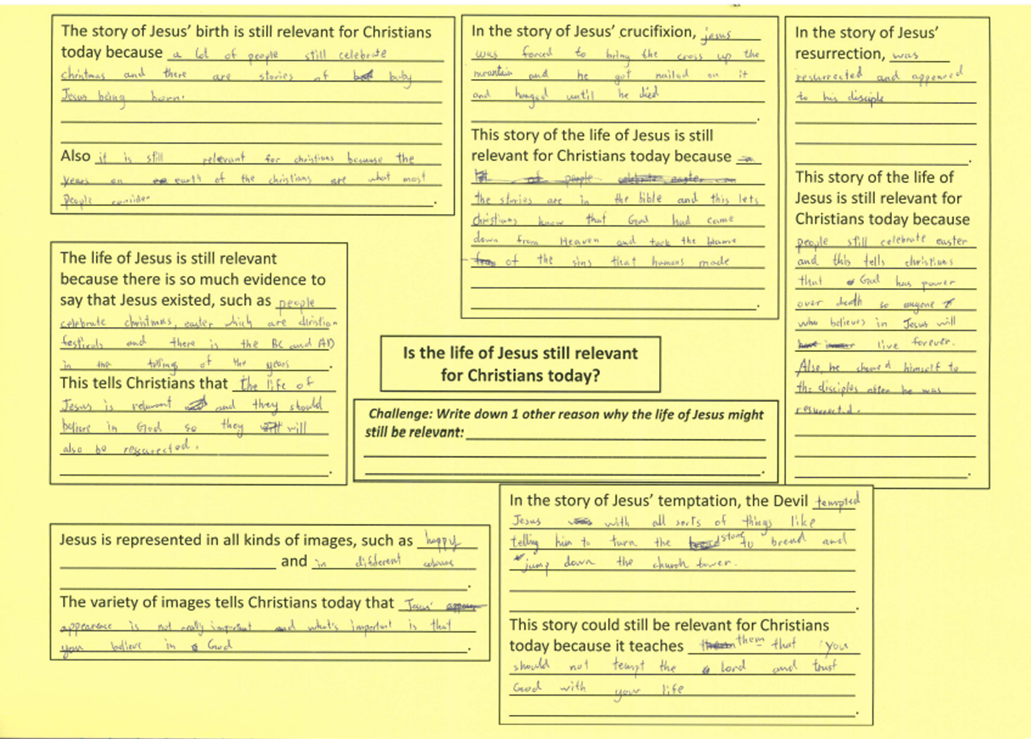 The story of Jesus' birth is still relevant for Christians
today because a lot of people still celebrate
christmas and there are stories of baby
Jesus being born.
Also it is still relevant for christians because the
years on earth of the christians are what most
people consider .
In the story of Jesus' crucifixion, jesus
was forced to bring the cross up the
mountain and he got nailed on it
and hanged until he died
.
This story of the life of Jesus is still
relevant for Christians today because a
lot of people celebrate easter
the stories are in the bible and this lets
christians know that God had came
down from Heaven and took the blame
of the sins that humans made
.
In the story of Jesus'
resurrection, was
resurrected and appeared
to his disciple
.
This story of the life of
Jesus is still relevant for
Christians today because
people still celebrate easter
and this tells christians
that God has power
over death so anyone
who believes in Jesus will
live forever.
Also, he showed himself to
the disciples after he was
resurrected.
.
The life of Jesus is still relevant
because there is so much evidence to
say that Jesus existed, such as people
celebrate christmas, easter which are christian
festivals and there is the BC and AD
in the telling of the years .
This tells Christians that the life of
Jesus is relevant and they should
believe in God so they will
also be resurrected.
.
Is the life of Jesus still relevant
for Christians today?
Challenge: Write down 1 other reason why the life of Jesus might
still be relevant:
.
Jesus is represented in all kinds of images, such as happy
and in different colours
.
The variety of images tells Christians today that Jesus'
appearence is not really important and what's important is that
you believe in God .
In the story of Jesus' temptation, the Devil tempted
Jesus with all sorts of things like
telling him to turn the stone to bread and
jump down the church tower.
.
This story could still be relevant for Christians
today because it teaches them that you
should not tempt the lord and trust
God with your life
.